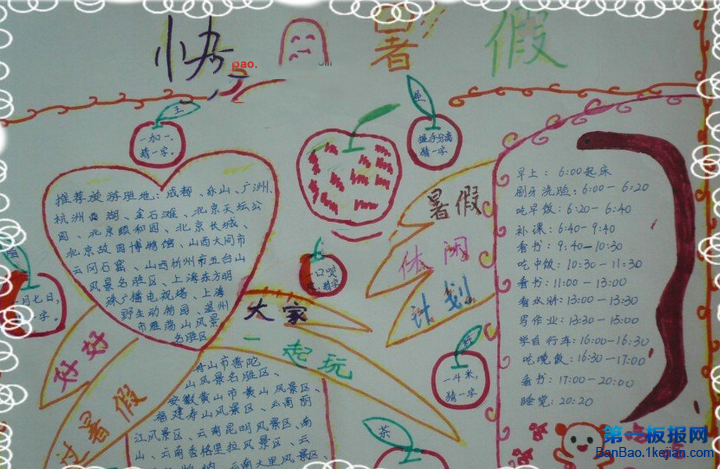 快
暑
假
一加一,
猜一字。
握手分离
猜一字
推荐旅游胜地:成都、乐山、广州、
杭州西湖、金石滩、北京天坛公
园、北京颐和园、北京长城、
北京故宫博物馆、山西大同市
云冈石窟、山西忻州市五台山
风景名胜区、上海东方明
珠广播电视塔、上海
野生动物园、温州
市雁荡山风景
名胜区
月七日,
字。
一口咬
一斗米,
猜一字
茶
好好
过暑假
大家
一起玩
暑假
休闲
计划
舟山市普陀
山风景名胜区、
安徽黄山市黄山风景区、
福建寿山风景区、云南丽
江风景区、云南昆明风景区、南
山、云南香格里拉风景区、云
云南大里风景区
早上:6:00起床
刷牙洗脸:6:00-6:20
吃早饭:6:20-6:40
补课:6:40-9:40
看书:9:40-10:30
吃中饭:10:30-11:30
看书:11:00-13:00
看水浒:13:00-13:30
写作业:13:30-15:00
学自行车:16:00-16:30
吃晚饭:16:30-17:00
看书:17:00-20:00
睡觉:20:20
第一板报网
BanBao.1kejian.com